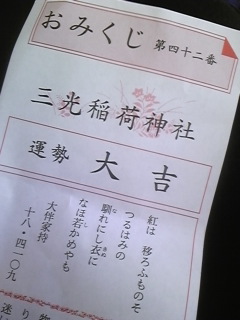 おみくじ 第四十二番
三光稲荷神社
運勢 大吉
紅は 移ろふものそ
つるはみの
馴れにし衣に
なほ若かめやも
大伴家持
十八・四一〇九